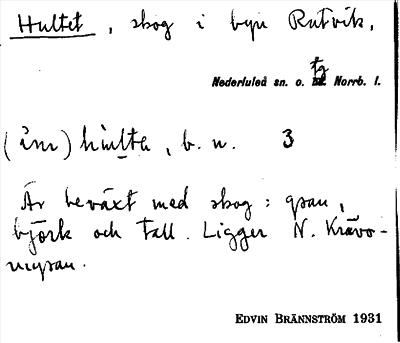 Hultet, skog i byn Rutvik,
tg
Nederluleå sn. o. hd. Norrb. l.
(inr) hulta, b. n. 3
Är beväxt med skog: gran,
björk och tall. Ligger N. Krävo-
myran.
EDVIN BRÄNNSTRÖM 1931